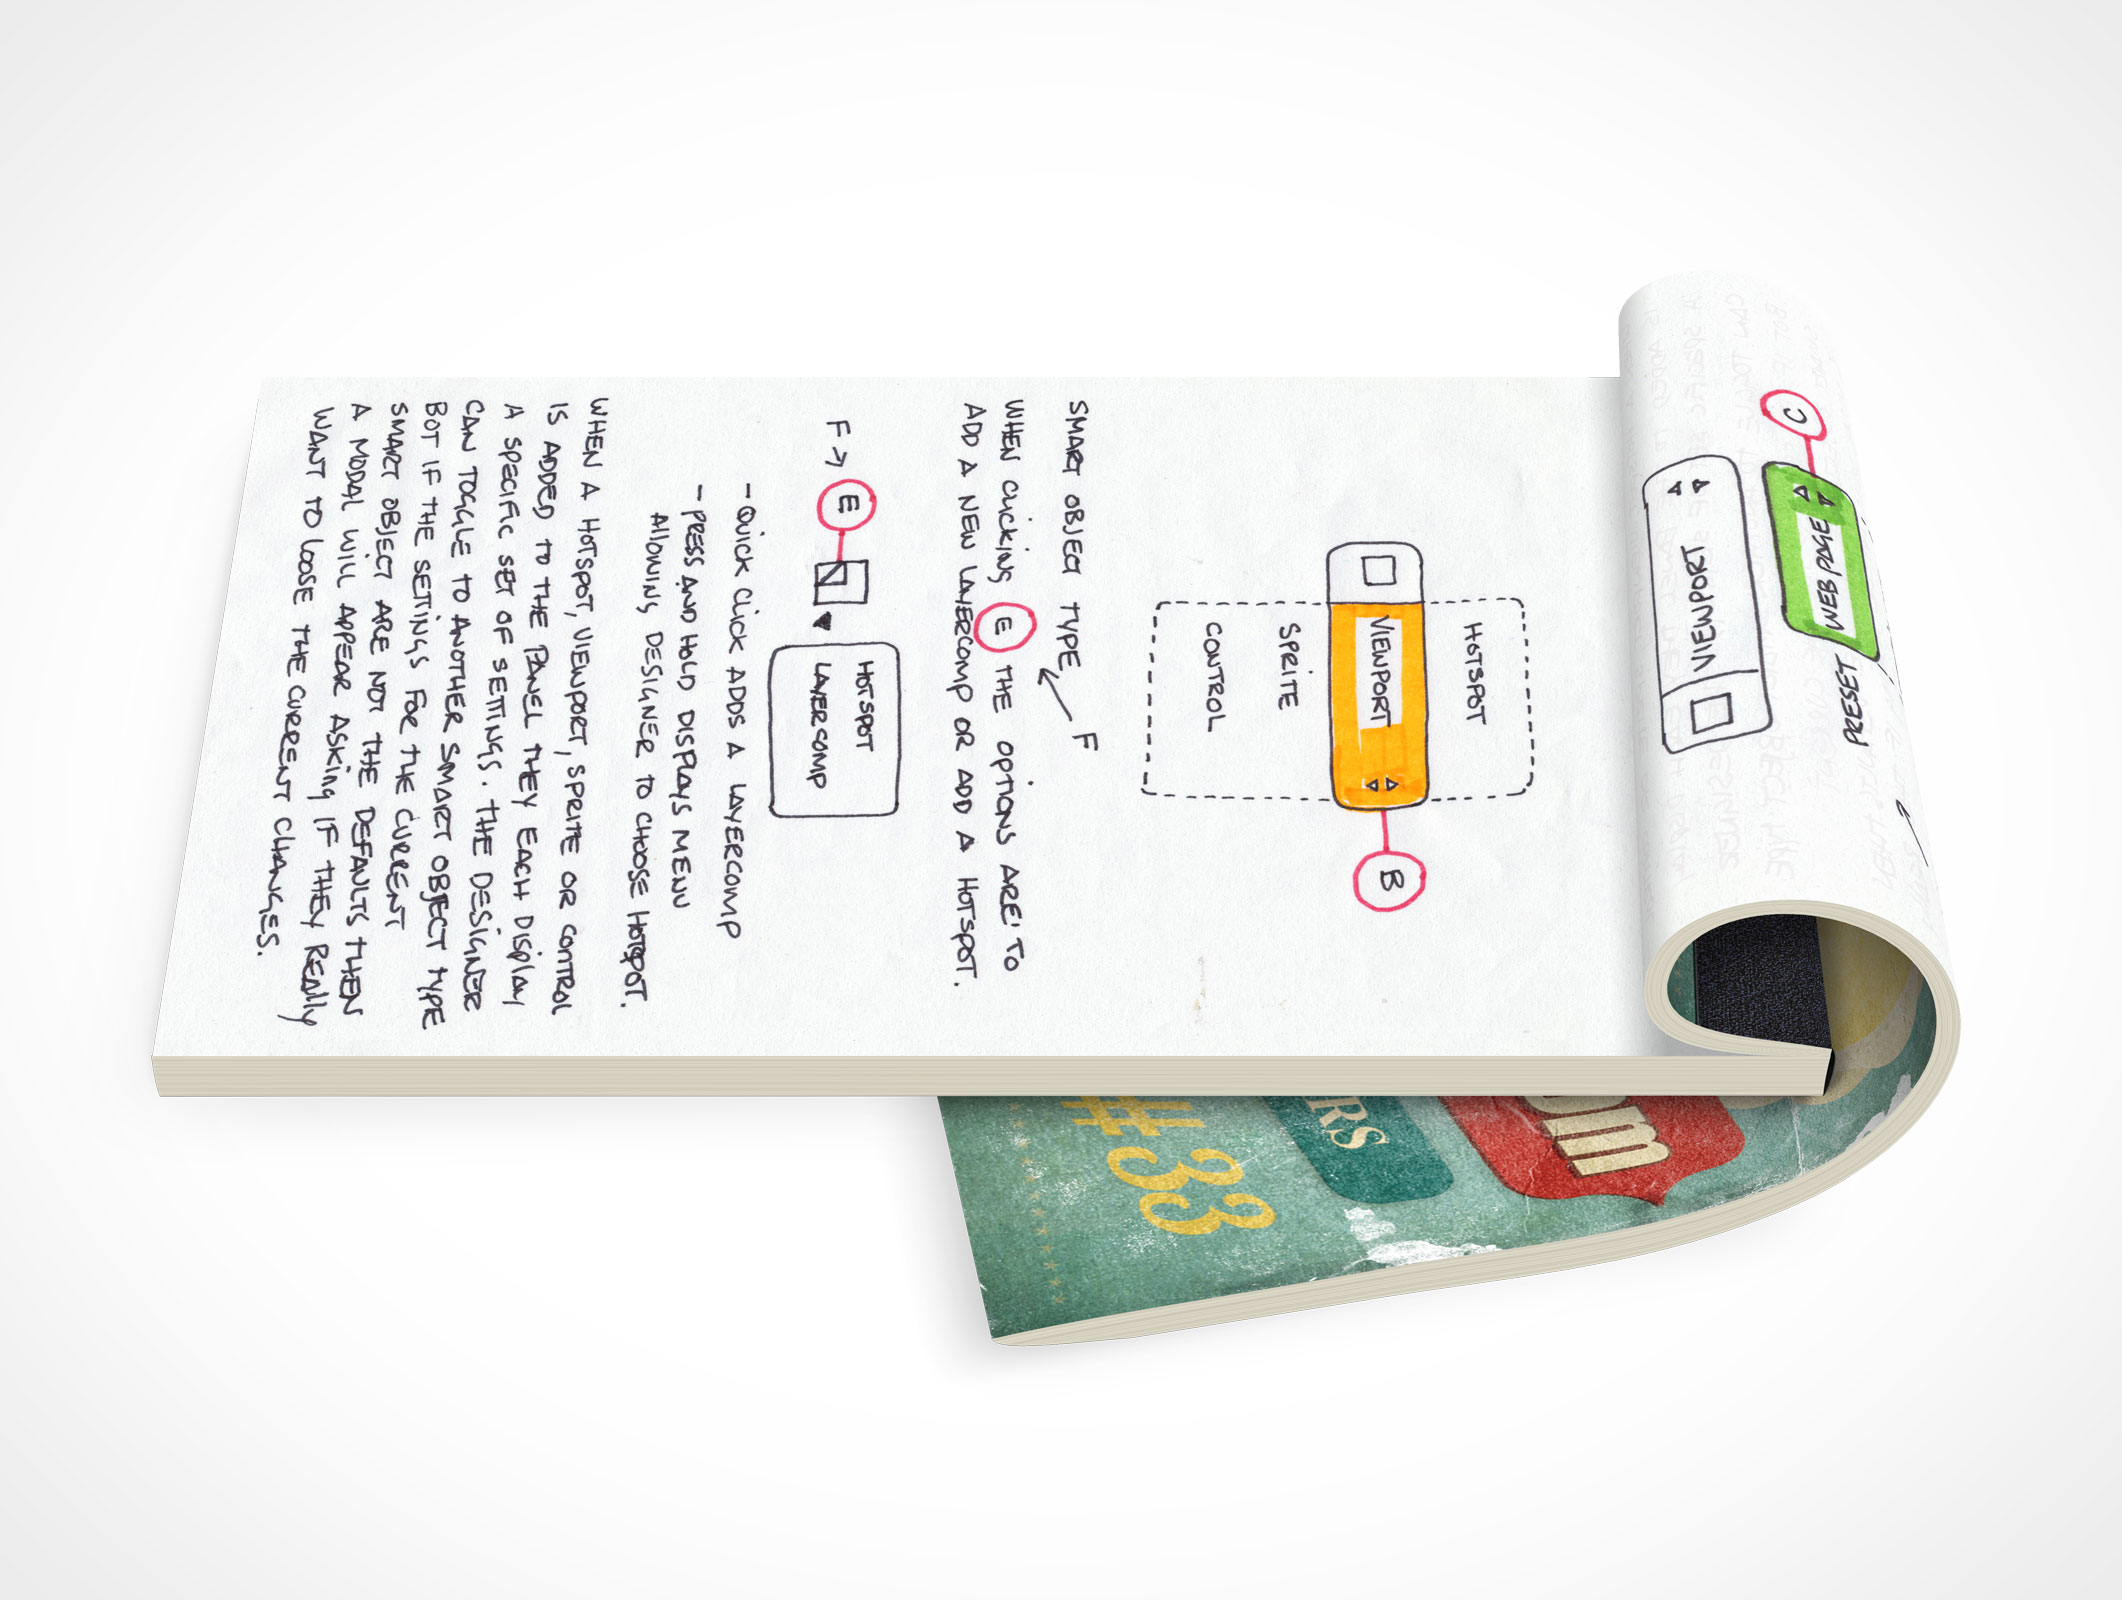 C
WEB PAGE
PRESET
VIEWPORT
HOTSPOT
VIEWPORT
B
SPRITE
CONTROL
SMART OBJECT TYPE
F
WHEN CLICKING E THE OPTIONS ARE: TO
ADD A NEW LAYERCOMP OR ADD A HOTSPOT.
F → E
HOTSPOT
LAYERCOMP
- QUICK CLICK ADDS A LAYERCOMP
- PRESS AND HOLD DISPLAYS MENU
ALLOWING DESIGNER TO CHOOSE HOTSPOT.
WHEN A HOTSPOT, VIEWPORT, SPRITE OR CONTROL
IS ADDED TO THE PANEL THEY EACH DISPLAY
A SPECIFIC SET OF SETTINGS. THE DESIGNER
CAN TOGGLE TO ANOTHER SMART OBJECT TYPE
BOT IF THE SETINGS FOR THE CURRENT
SMART OBJECT ARE NOT THE DEFAULTS THEN
A MODAL WILL APPEAR ASKING IF THEY REALLY
WANT TO LOOSE THE CURRENT CHANGES.
RS
#33